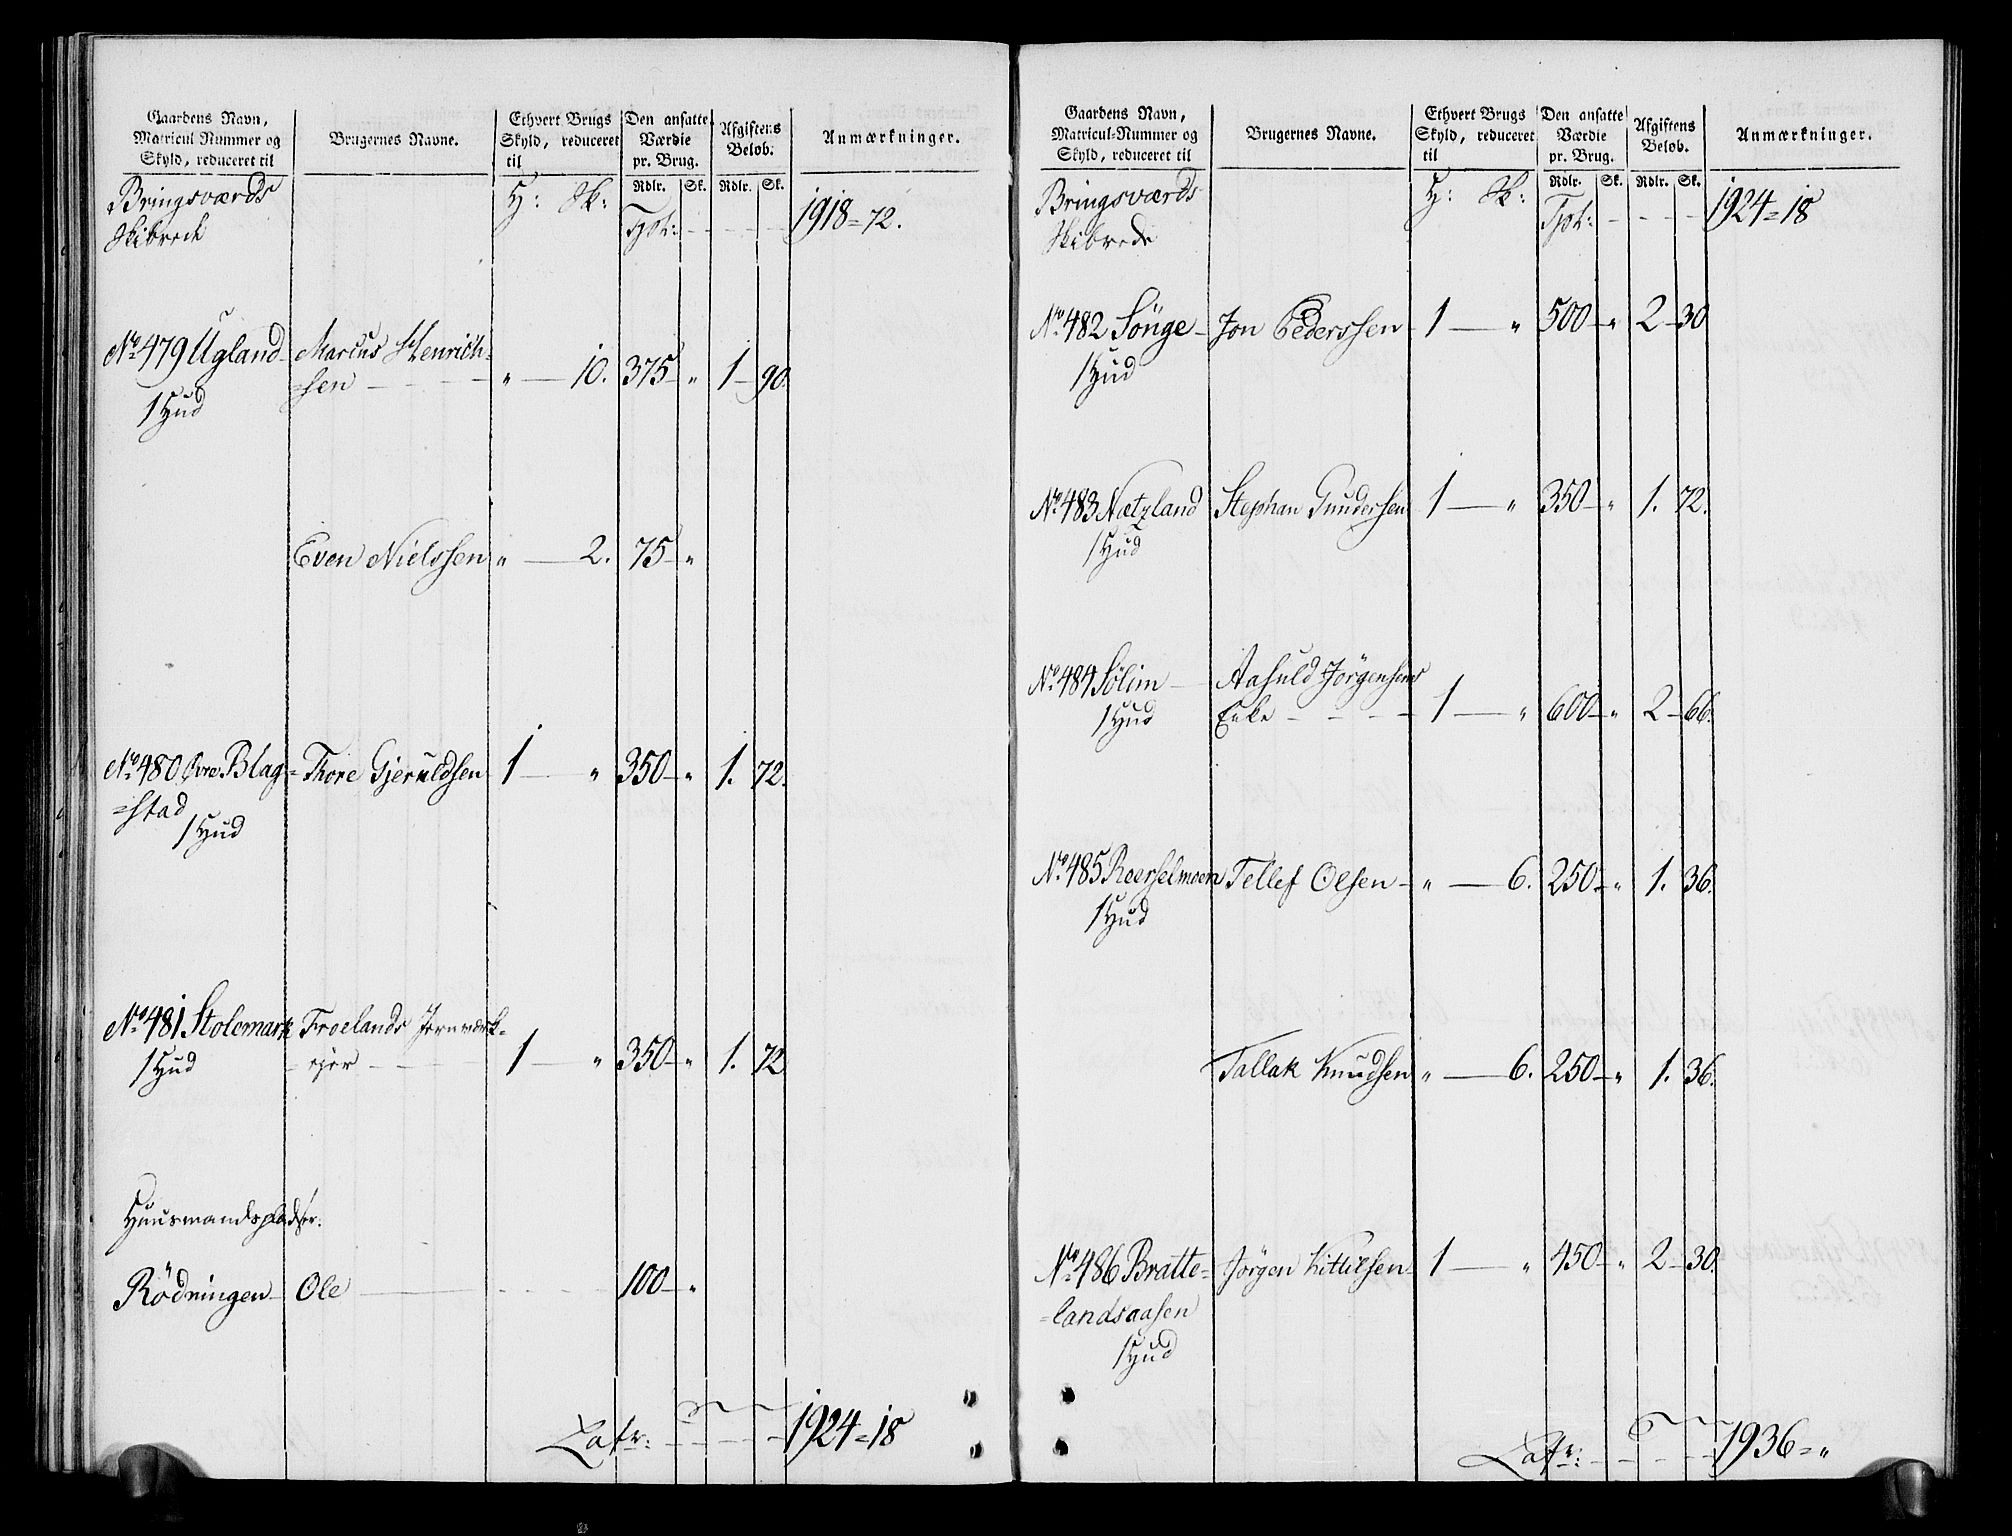 Gaardens Navn, Matricul Nummer og Skyld, reduceret til | Brugernes Navne. | Ethvert Brugs Skyld, reduceret til | Den ansatte Værdie pr. Brug. | Afgiftens Beløb. | Anmærkninger.
Rdlr. | Sk. | Rdlr. | Sk.
Bringsværds H: Sk: Tpt: 1918=72.
Skibrede
No 479 Ugland Marcus Henrich=
=sen " 10. 375 " 1 90.
1 Hud
Even Nielssen " 2. 75 "
No 480 Øvre Blag= Thore Gjeruldsen 1 " 350 " 1. 72.
=stad
1 Hud
No 481 Stolemark Froelands Jernværk=
1 Hud ejer 1 " 350 " 1. 72
Huusmandspladser.
Rödningen Ole 100 "
Latr: 1924=18
Gaardens Navn, Matricul-Nummer og Skyld, reduceret til | Brugernes Navne. | Ethvert Brugs Skyld, reduceret til | Den ansatte Værdie pr. Brug. | Afgiftens Beløb. | Anmærkninger.
Rdlr. | Sk. | Rdlr. | Sk.
Bringsværds H: Sk: Tpt: 1924=18
Skibrede
No 482 Sönge Jon Pederssen 1 " 500 " 2 30
1 Hud
No 483 Nætzland Stephan Gundersen 1 " 350 " 1. 72.
1 Hud
No 484 Sölim Aasuld Jörgensens
1 Hud Enke 1 " 600 " 2 66.
No 485 Roerselmoen Tellef Olsen " 6. 250 " 1. 36.
1 Hud
Tallak Knudsen " 6. 250 " 1. 36.
No 486 Bratte= Jörgen Kittelsen 1 " 450 " 2 30.
=landsaasen
1 Hud
Latr: 1936="